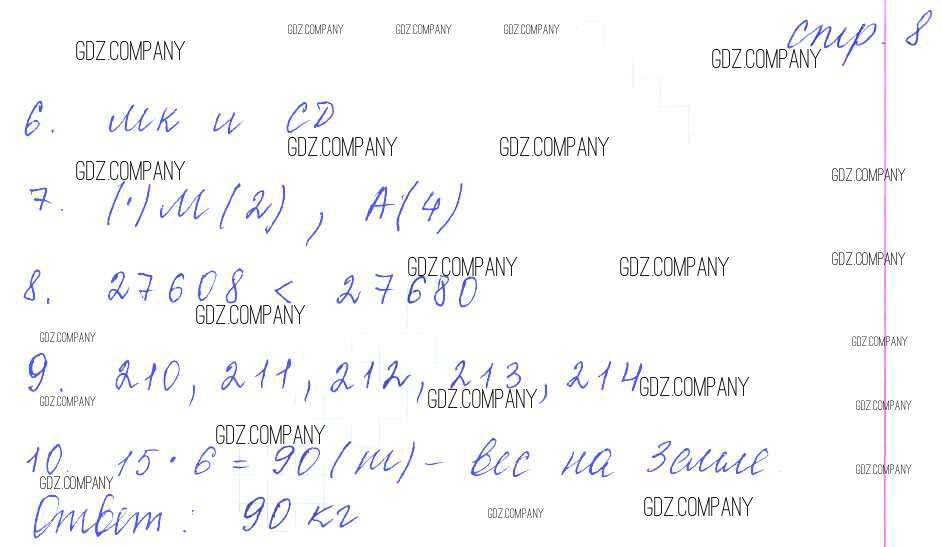 GDZ.COMPANY GDZ.COMPANY GDZ.COMPANY
стр. 8
GDZ.COMPANY GDZ.COMPANY
6. МК и CD
GDZ.COMPANY GDZ.COMPANY
GDZ.COMPANY GDZ.COMPANY
7. (·) М (2), А(4)
GDZ.COMPANY GDZ.COMPANY GDZ.COMPANY
8. 27608 < 27680
GDZ.COMPANY
GDZ.COMPANY GDZ.COMPANY
9. 210, 211, 212, 213, 214
GDZ.COMPANY GDZ.COMPANY
GDZ.COMPANY GDZ.COMPANY
GDZ.COMPANY
10. 15 · 6 = 90 (т) – вес на Земле
GDZ.COMPANY GDZ.COMPANY
Ответ: 90 кг
GDZ.COMPANY GDZ.COMPANY